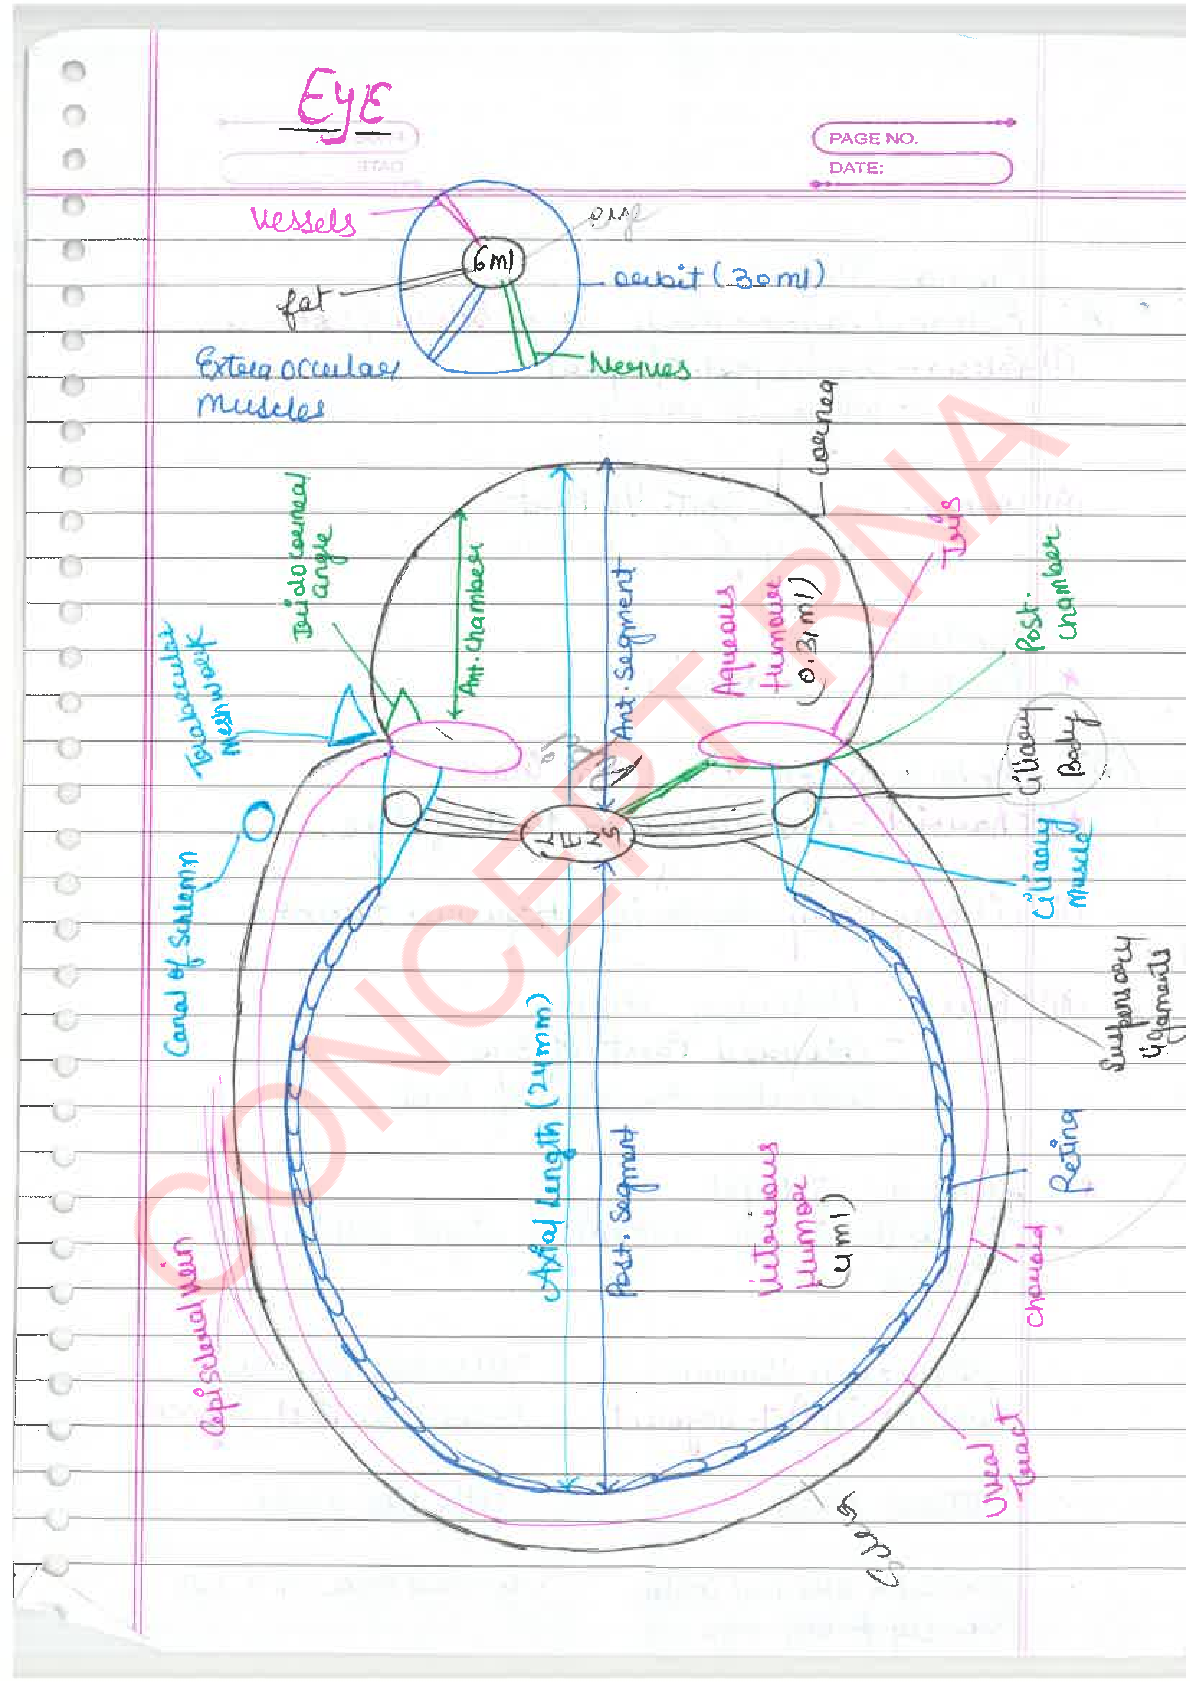 EyE
PAGE NO.
DATE:
Vessels
eye
6ml
orbit (30ml)
fat
Extraoccular
Muscles
Nerves
Cornea
Irido corneal
angle
Ant. Chamber
Ant. Segment
Aqueous
Humour
(0.31ml)
Iris
Post.
Chamber
Trabecular
Meshwork
Ciliary
Body
LENS
Ciliary
Muscle
Canal of Schlemn
Suspensory
ligaments
Axial Length (24mm)
Post. Segment
Vitorious
Humor
(4ml)
Retina
Choroid
Episcleral vein
Uveal
Tract
Sclera
CONCEPT RNA